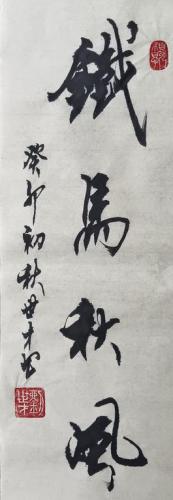 鐵馬秋風
癸卯初秋世才書